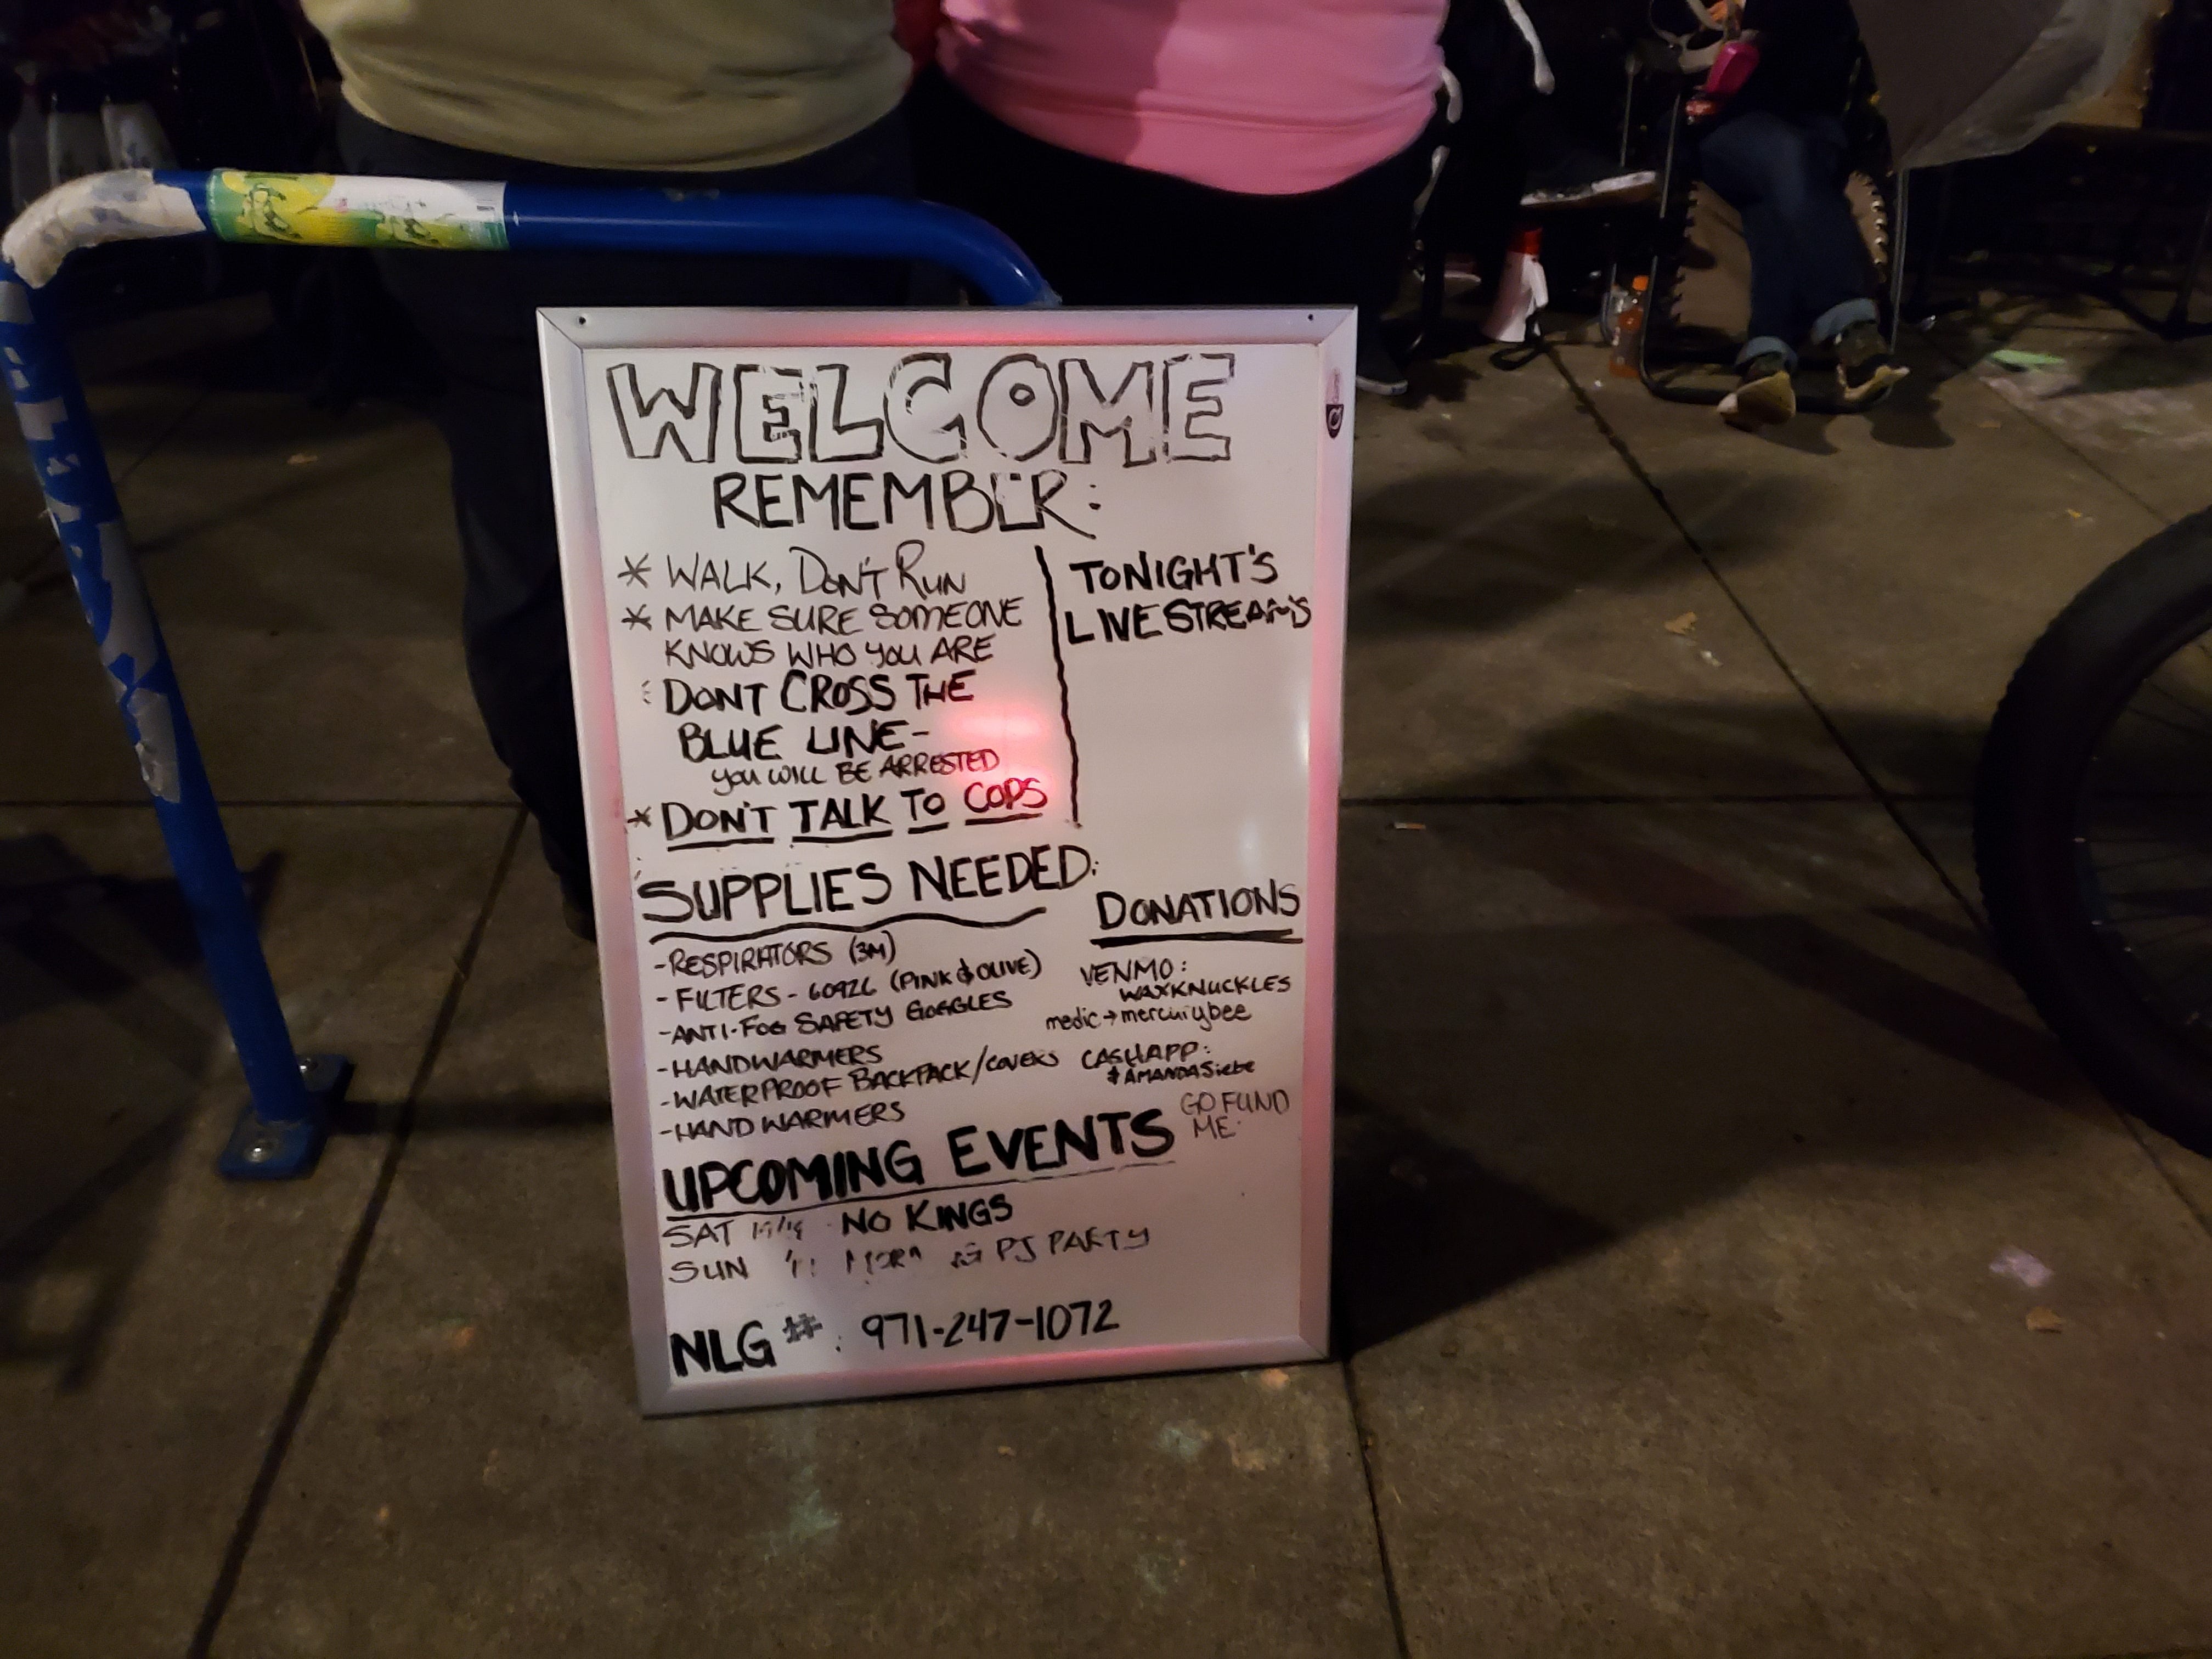 WELCOME
REMEMBER:
* WALK, DON'T RUN
* MAKE SURE SOMEONE
KNOWS WHO YOU ARE
DONT CROSS THE
BLUE LINE-
YOU WILL BE ARRESTED
* DON'T TALK TO COPS
TONIGHT'S
LIVESTREAMS
SUPPLIES NEEDED:
-RESPIRATORS (3M)
-FILTERS - 60926 (PINK & OLIVE)
-ANTI-FOG SAFETY GOGGLES
-HANDWARMERS
-WATERPROOF BACKPACK/COVERS
-HAND WARMERS
DONATIONS
VENMO:
WAXKNUCKLES
medic → mercurybee
CASHAPP:
$AMANDASiebe
GO FUND
ME:
UPCOMING EVENTS
SAT NO KINGS
SUN PJ PARTY
NLG #: 971-247-1072